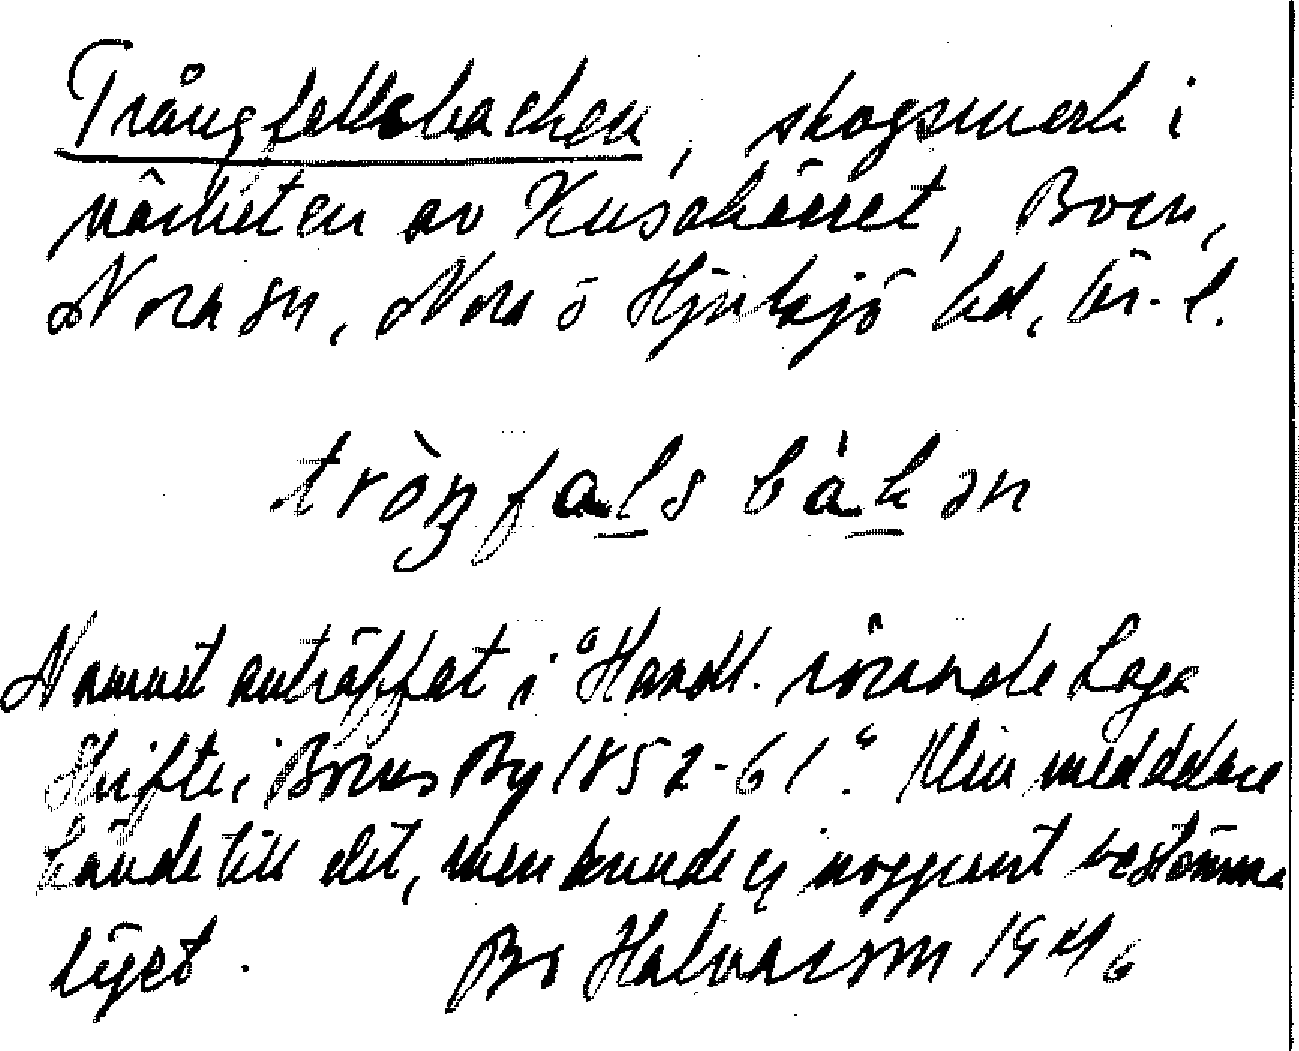 Trångfallsbacken, skogsmark i
närheten av Kuså kärret, Born,
Nora sn, Nora o Hjulsjö hd, Ör. l.
tròŋfalsbàkən
Namnet anträffat i "Handl. rörande Laga
Skifte i Borns By 1852-61". Min meddelare
kände till det, men kunde ej noggrant bestämma
läget. Bo Halvarson 1946